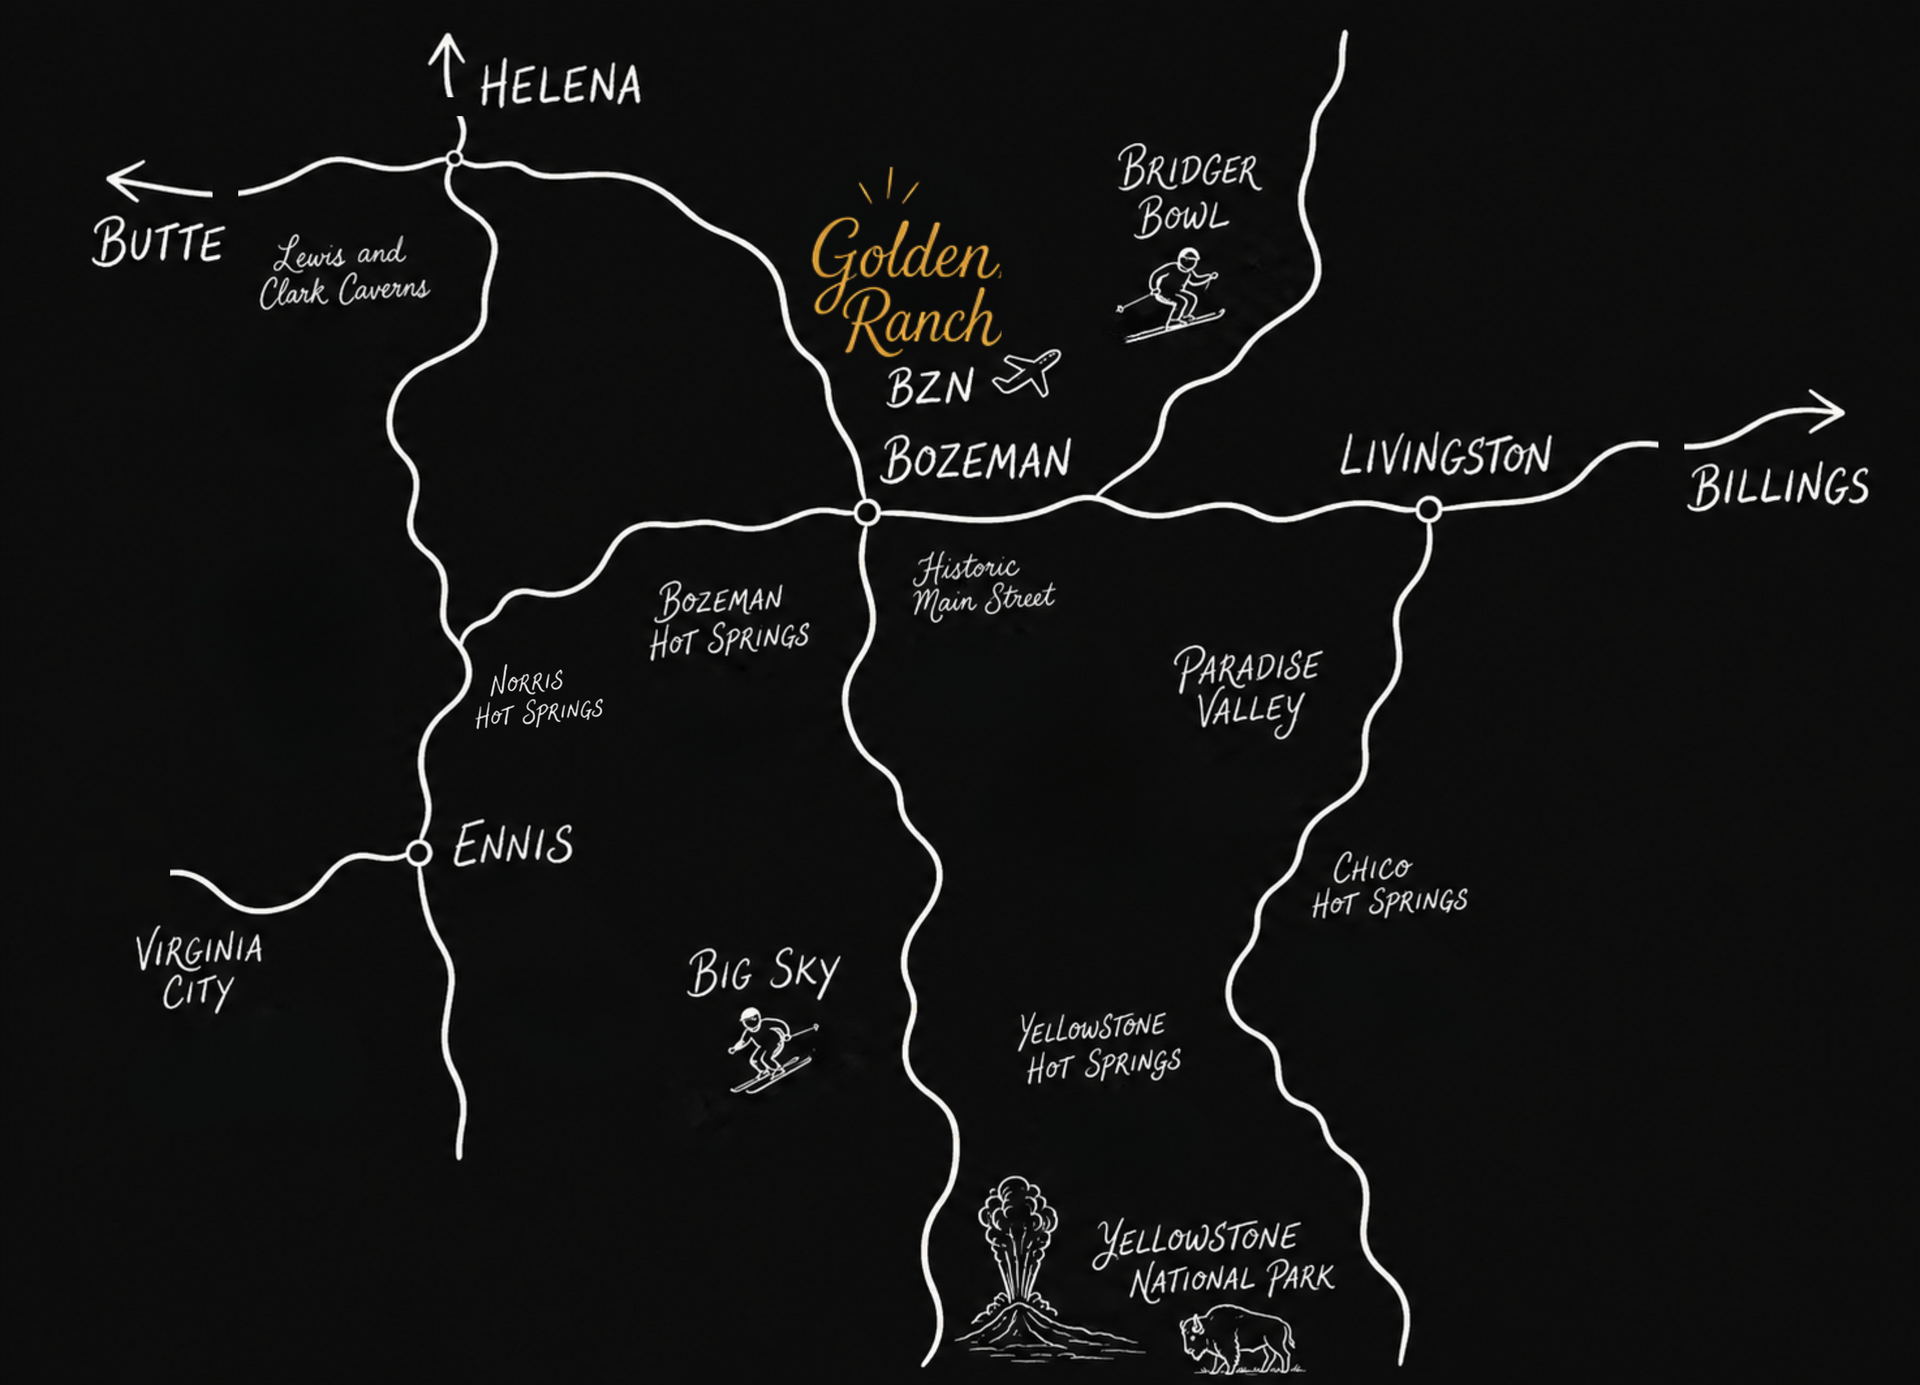 HELENA
BUTTE
Lewis and
Clark Caverns
Golden
Ranch
BZN
BRIDGER
BOWL
BOZEMAN
LIVINGSTON
BILLINGS
Historic
Main Street
BOZEMAN
HOT SPRINGS
NORRIS
HOT SPRINGS
PARADISE
VALLEY
ENNIS
CHICO
HOT SPRINGS
VIRGINIA
CITY
BIG SKY
YELLOWSTONE
HOT SPRINGS
YELLOWSTONE
NATIONAL PARK